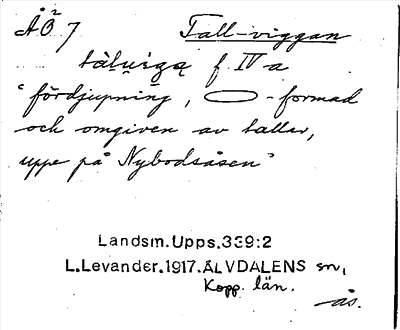 ÅÖ² 7 Tall-viggan
tàlviga f. IV a
"fördjupning, ⬭-formad
och omgiven av tallar,
uppe på Nybodsåsen"
Landsm.Upps.339:2
L.Levander.1917.ÄLVDALENS sn,
Kopp. län.